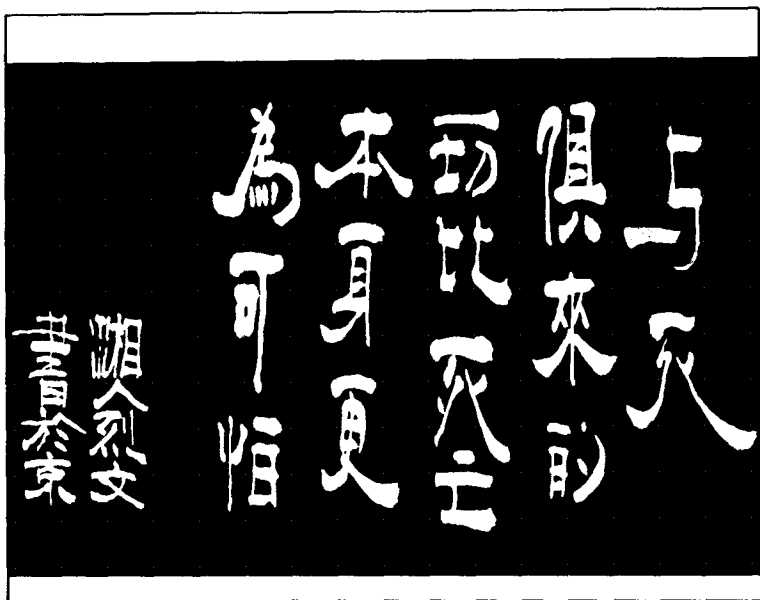 与死
俱來的
一切比死亡
本身更
為可怕
湘人烈文
書於京